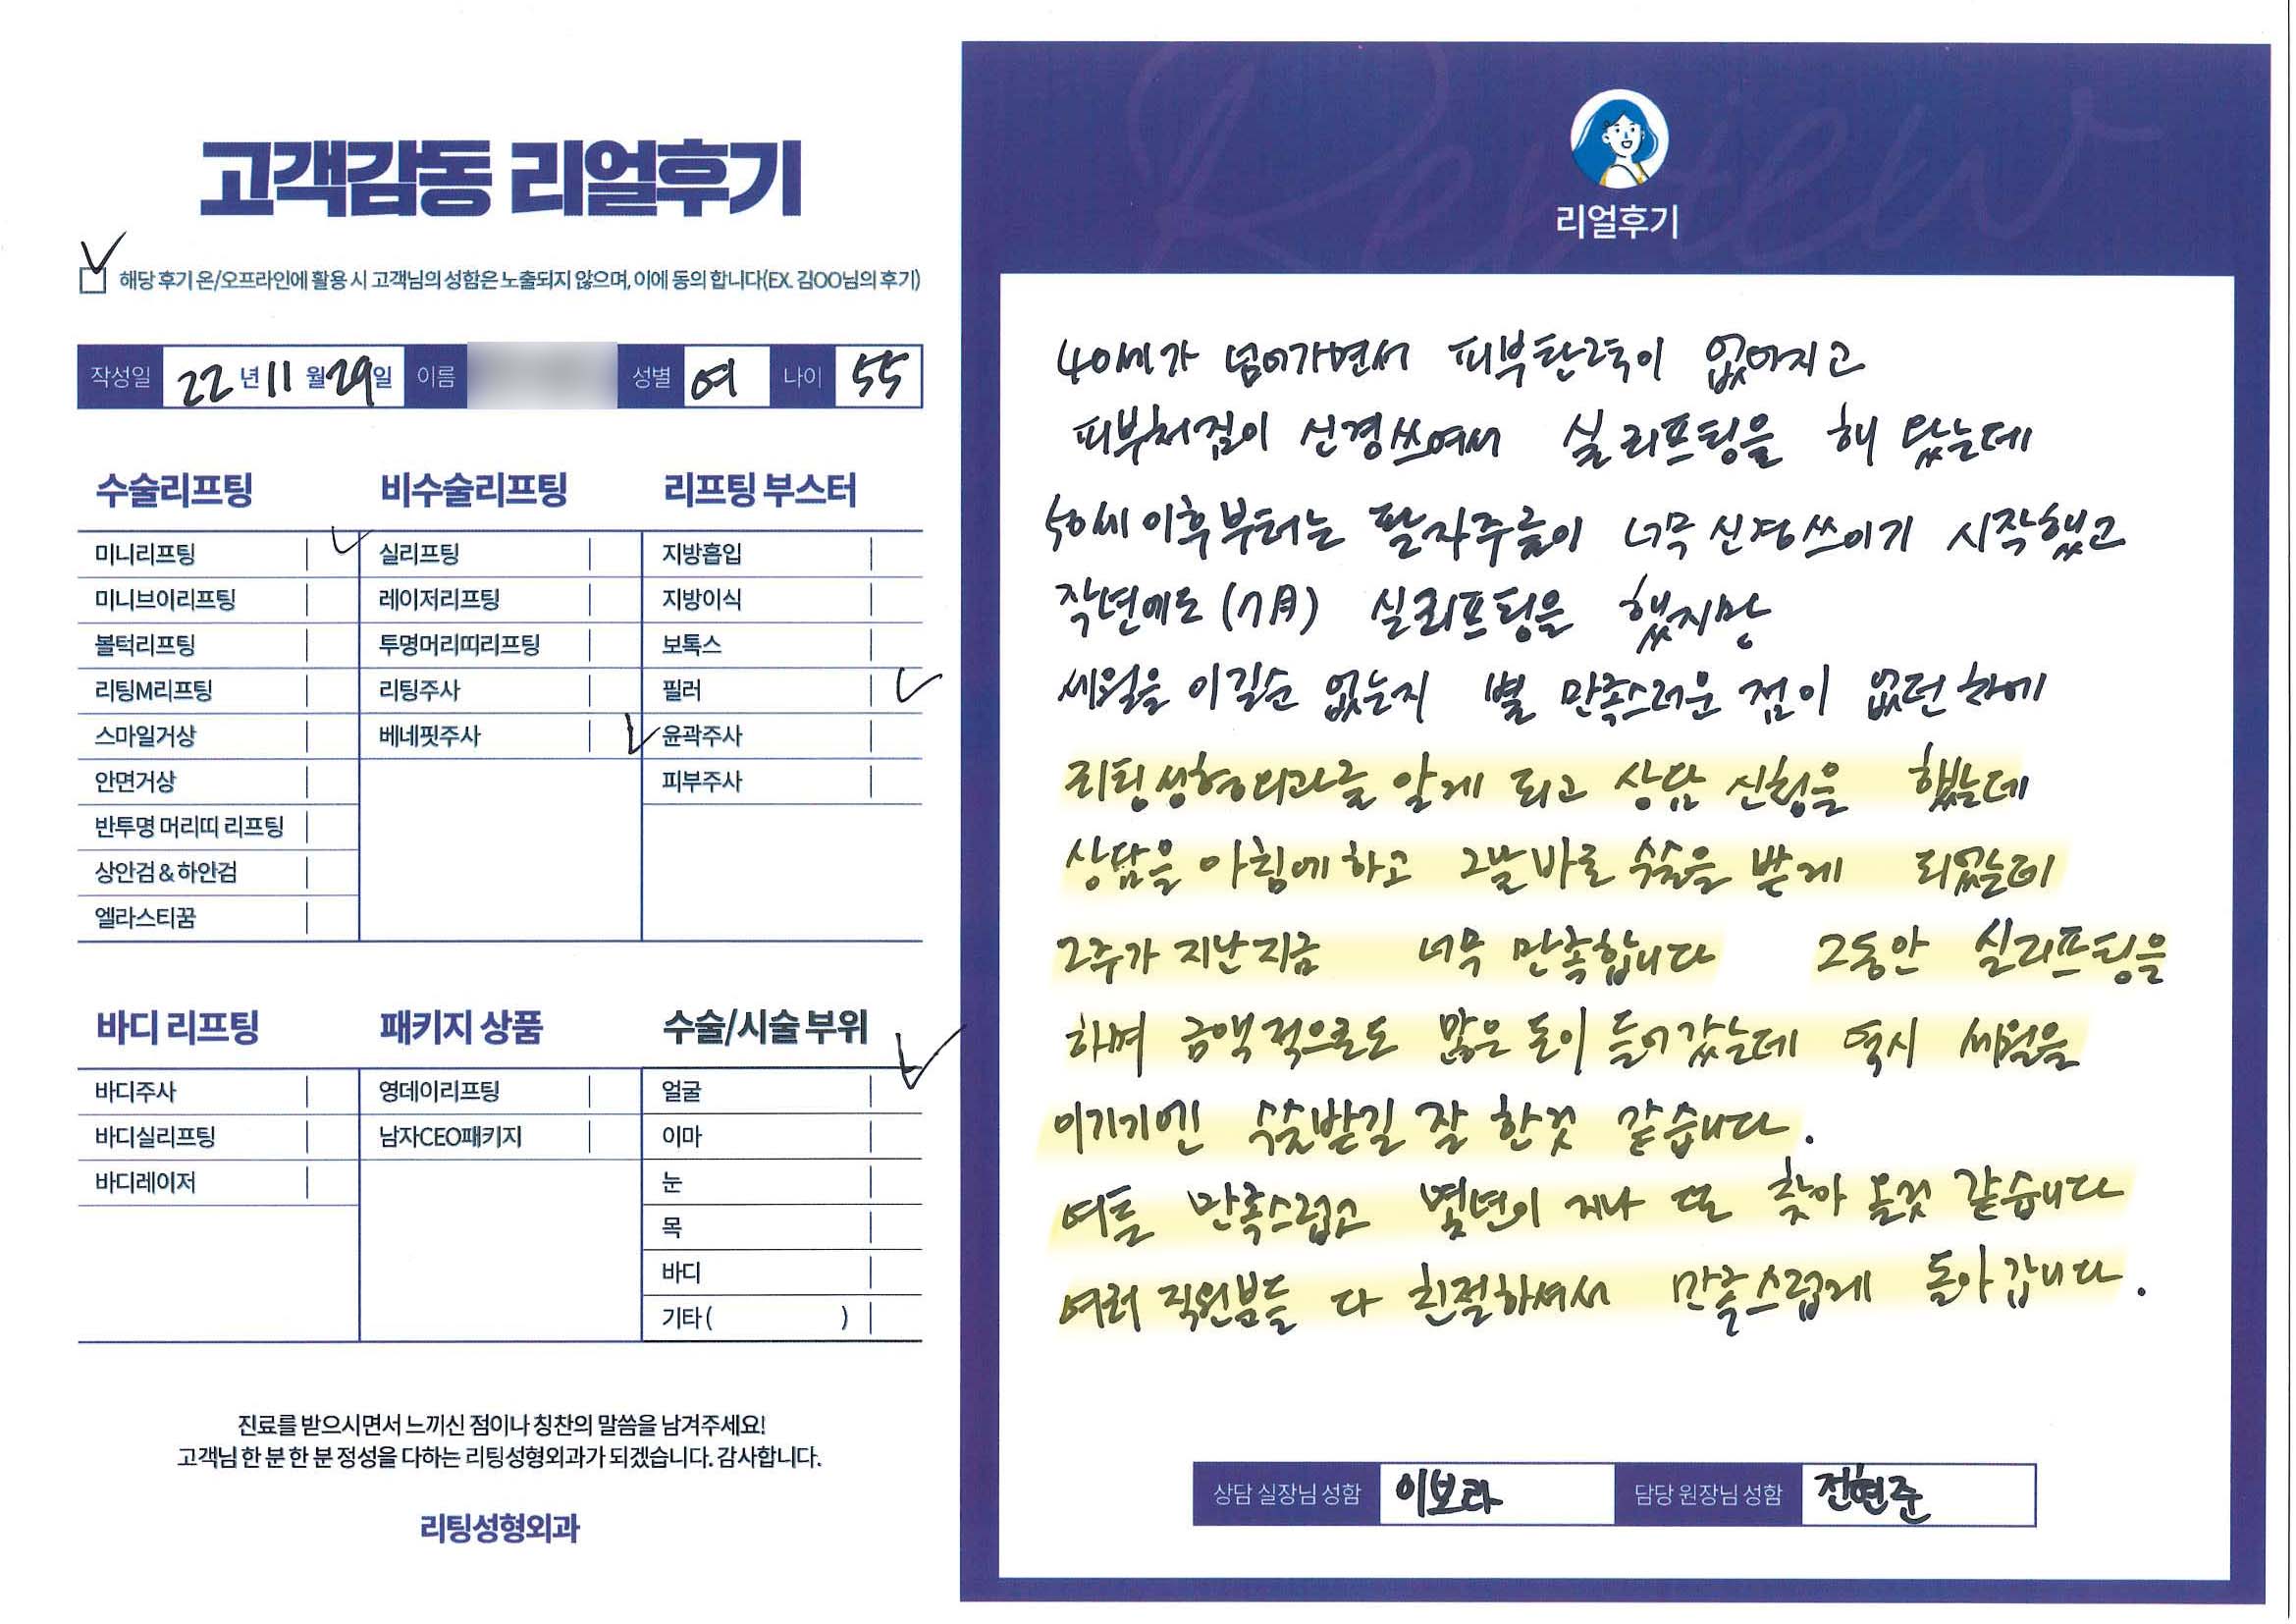 고객감동 리얼후기
해당 후기 온/오프라인에 활용 시 고객님의 성함은 노출되지 않으며, 이에 동의 합니다(EX. 김OO님의 후기)
작성일 22년 11월 29일 이름 성별 여 나이 55
수술리프팅
미니리프팅
미니브이리프팅
볼턱리프팅
리팅M리프팅
스마일거상
안면거상
반투명 머리띠 리프팅
상안검 & 하안검
엘라스티꿈
비수술리프팅
실리프팅
레이저리프팅
투명머리띠리프팅
리팅주사
베네핏주사
리프팅 부스터
지방흡입
지방이식
보톡스
필러
윤곽주사
피부주사
바디 리프팅
바디주사
바디실리프팅
바디레이저
패키지 상품
영데이리프팅
남자CEO패키지
수술/시술 부위
얼굴
이마
눈
목
바디
기타 ( )
진료를 받으시면서 느끼신 점이나 칭찬의 말씀을 남겨주세요!
고객님 한 분 한 분 정성을 다하는 리팅성형외과가 되겠습니다. 감사합니다.
리팅성형외과
Review
리얼후기
40세가 넘어가면서 피부탄력이 없어지고
피부처짐이 신경쓰여서 실리프팅을 해 왔는데
50세 이후부터는 팔자주름이 너무 신경쓰이기 시작했고
작년에도 (7月) 실리프팅을 했지만
세월을 이길순 없는지 별 만족스러운 점이 없던 차에
리팅성형외과를 알게 되고 상담 신청을 했는데
상담을 아침에 하고 그날 바로 수술을 받게 되었는데
2주가 지난 지금 너무 만족합니다 그동안 실리프팅을
하며 금액적으로도 많은 돈이 들어갔는데 역시 세월을
이기기엔 수술받길 잘 한것 같습니다.
여튼 만족스럽고 몇년이 지나 또 찾아 올것 같습니다
여러 직원분들 다 친절하셔서 만족스럽게 돌아 갑니다.
상담 실장님 성함 이보라 담당 원장님 성함 전현준